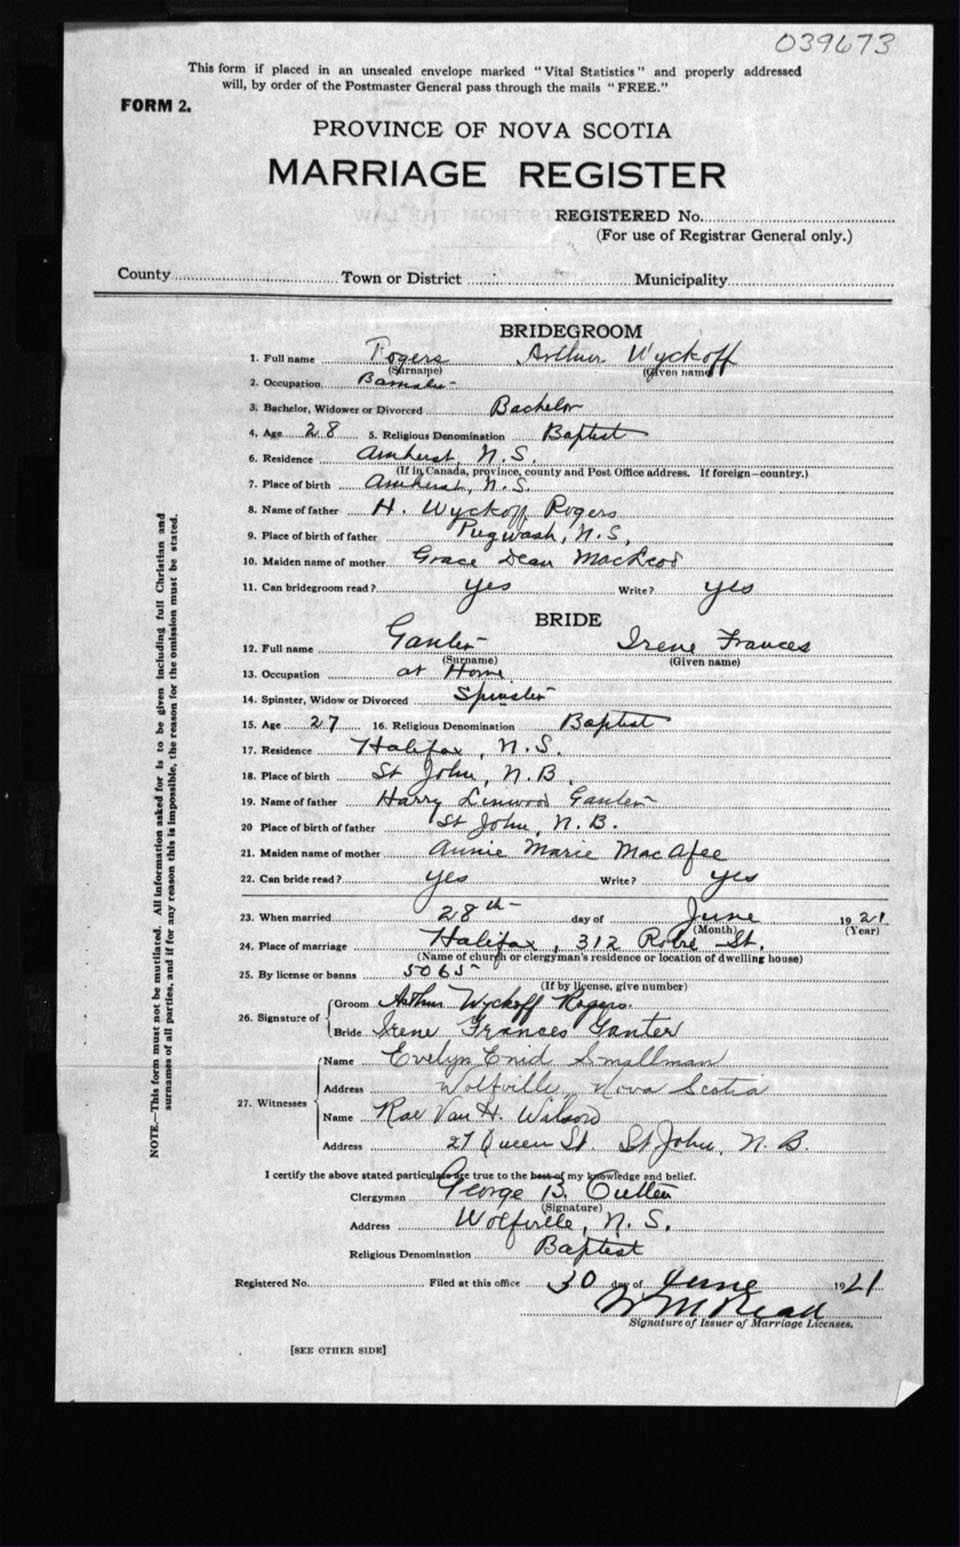 039673
This form if placed in an unsealed envelope marked "Vital Statistics" and properly addressed
will, by order of the Postmaster General pass through the mails "FREE."
FORM 2.
PROVINCE OF NOVA SCOTIA
MARRIAGE REGISTER
REGISTERED No.
(For use of Registrar General only.)
County Town or District Municipality
BRIDEGROOM
1. Full name Rogers Arthur Wyckoff
(Surname) (Given name)
2. Occupation
3. Bachelor, Widower or Divorced Bachelor
4. Age 28 5. Religious Denomination Baptist
6. Residence Amherst, N.S.
(If in Canada, province, county and Post Office address. If foreign—country.)
7. Place of birth Amherst, N.S.
8. Name of father H. Wyckoff Rogers
9. Place of birth of father Pugwash, N.S.,
10. Maiden name of mother Grace Dean MacLeod
11. Can bridegroom read? yes Write? yes
BRIDE
12. Full name Ganter Irene Frances
(Surname) (Given name)
13. Occupation at Home
14. Spinster, Widow or Divorced Spinster
15. Age 27 16. Religious Denomination Baptist
17. Residence Halifax, N.S.
18. Place of birth St John, N.B.
19. Name of father Harry Linwood Ganter
20 Place of birth of father St John, N.B.
21. Maiden name of mother Annie Marie MacAfee
22. Can bride read? yes Write? yes
23. When married 28th day of June 1921
(Month) (Year)
24. Place of marriage Halifax, 312 Robie St.
(Name of church or clergyman's residence or location of dwelling house)
25. By license or banns 5065
(If by license, give number)
26. Signature of Groom Arthur Wyckoff Rogers.
Bride Irene Frances Ganter
27. Witnesses Name Evelyn Enid Smallman
Address Wolfville, Nova Scotia
Name Rae Van H. Wilson
Address 27 Queen St. St John, N.B.
I certify the above stated particulars are true to the best of my knowledge and belief.
Clergyman George B. Cutten
(Signature)
Address Wolfville, N.S.
Religious Denomination Baptist
Registered No. Filed at this office 30 day of June 1921
Signature of Issuer of Marriage Licenses.
[SEE OTHER SIDE]
NOTE.—This form must not be mutilated. All information asked for is to be given including full Christian and
surnames of all parties, and if for any reason this is impossible, the reason for the omission must be stated.